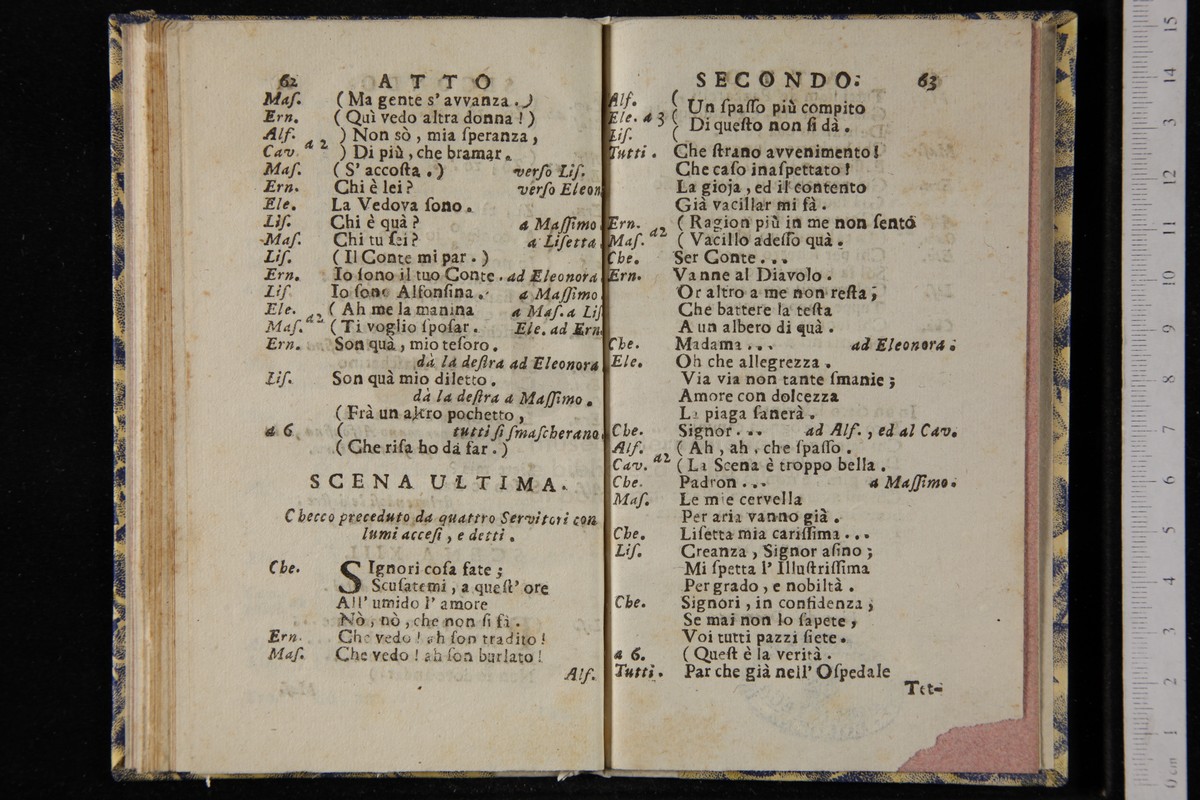 62 ATTO
Maſ. (Ma gente s' avvanza.)
Ern. (Quì vedo altra donna!)
Alf. ) Non sò, mia ſperanza,
a 2
Cav. ) Di più, che bramar.
Maſ. (S' accoſta.) verſo Liſ.
Ern. Chi è lei? verſo Eleon
Ele. La Vedova ſono.
Liſ. Chi è quà? a Maſſimo
Maſ. Chi tu ſei? a Liſetta
Liſ. (Il Conte mi par.)
Ern. Io ſono il tuo Conte. ad Eleonora
Liſ. Io ſono Alfonſina. a Maſſimo
Ele. ( Ah me la manina a Maſ. a Liſ
a 2
Maſ. ( Ti voglio ſpoſar. Ele. ad Ern
Ern. Son quà, mio teſoro.
dà la deſtra ad Eleonora
Liſ. Son quà mio diletto.
dà la deſtra a Maſſimo.
(Frà un altro pochetto,
a 6. ( tutti ſi ſmaſcherano
(Che riſa ho da far.)
SCENA ULTIMA.
Checco preceduto da quattro Servitori con
lumi acceſi, e detti.
Che. SIgnori coſa fate;
Scuſatemi, a queſt' ore
All' umido l' amore
Nò, nò, che non ſi fà.
Ern. Che vedo! ah ſon tradito!
Maſ. Che vedo! ah ſon burlato!
Alf.
SECONDO. 63
Alf. (
Un ſpaſſo più compito
Ele. a 3 (
Di queſto non ſi dà.
Liſ. (
Tutti. Che ſtrano avvenimento!
Che caſo inaſpettato!
La gioja, ed il contento
Già vacillar mi fà.
Ern. ( Ragion più in me non ſento
a2
Maſ. ( Vacillo adeſſo quà.
Che. Ser Conte...
Ern. Vanne al Diavolo.
Or altro a me non reſta;
Che battere la teſta
A un albero di quà.
Che. Madama... ad Eleonora.
Ele. Oh che allegrezza.
Via via non tante ſmanie;
Amore con dolcezza
La piaga ſanerà.
Che. Signor... ad Alf., ed al Cav.
Alf. ( Ah, ah, che ſpaſſo.
a2
Cav. ( La Scena è troppo bella.
Che. Padron... a Maſſimo.
Maſ. Le mie cervella
Per aria vanno già.
Che. Liſetta mia cariſſima...
Liſ. Creanza, Signor aſino;
Mi ſpetta l' Illuſtriſſima
Per grado, e nobiltà.
Che. Signori, in confidenza,
Se mai non lo ſapete,
Voi tutti pazzi ſiete.
a 6. (Queſt è la verità.
Tutti. Par che già nell' Oſpedale
Tet-
0 cm 1 2 3 4 5 6 7 8 9 10 11 12 13 14 15